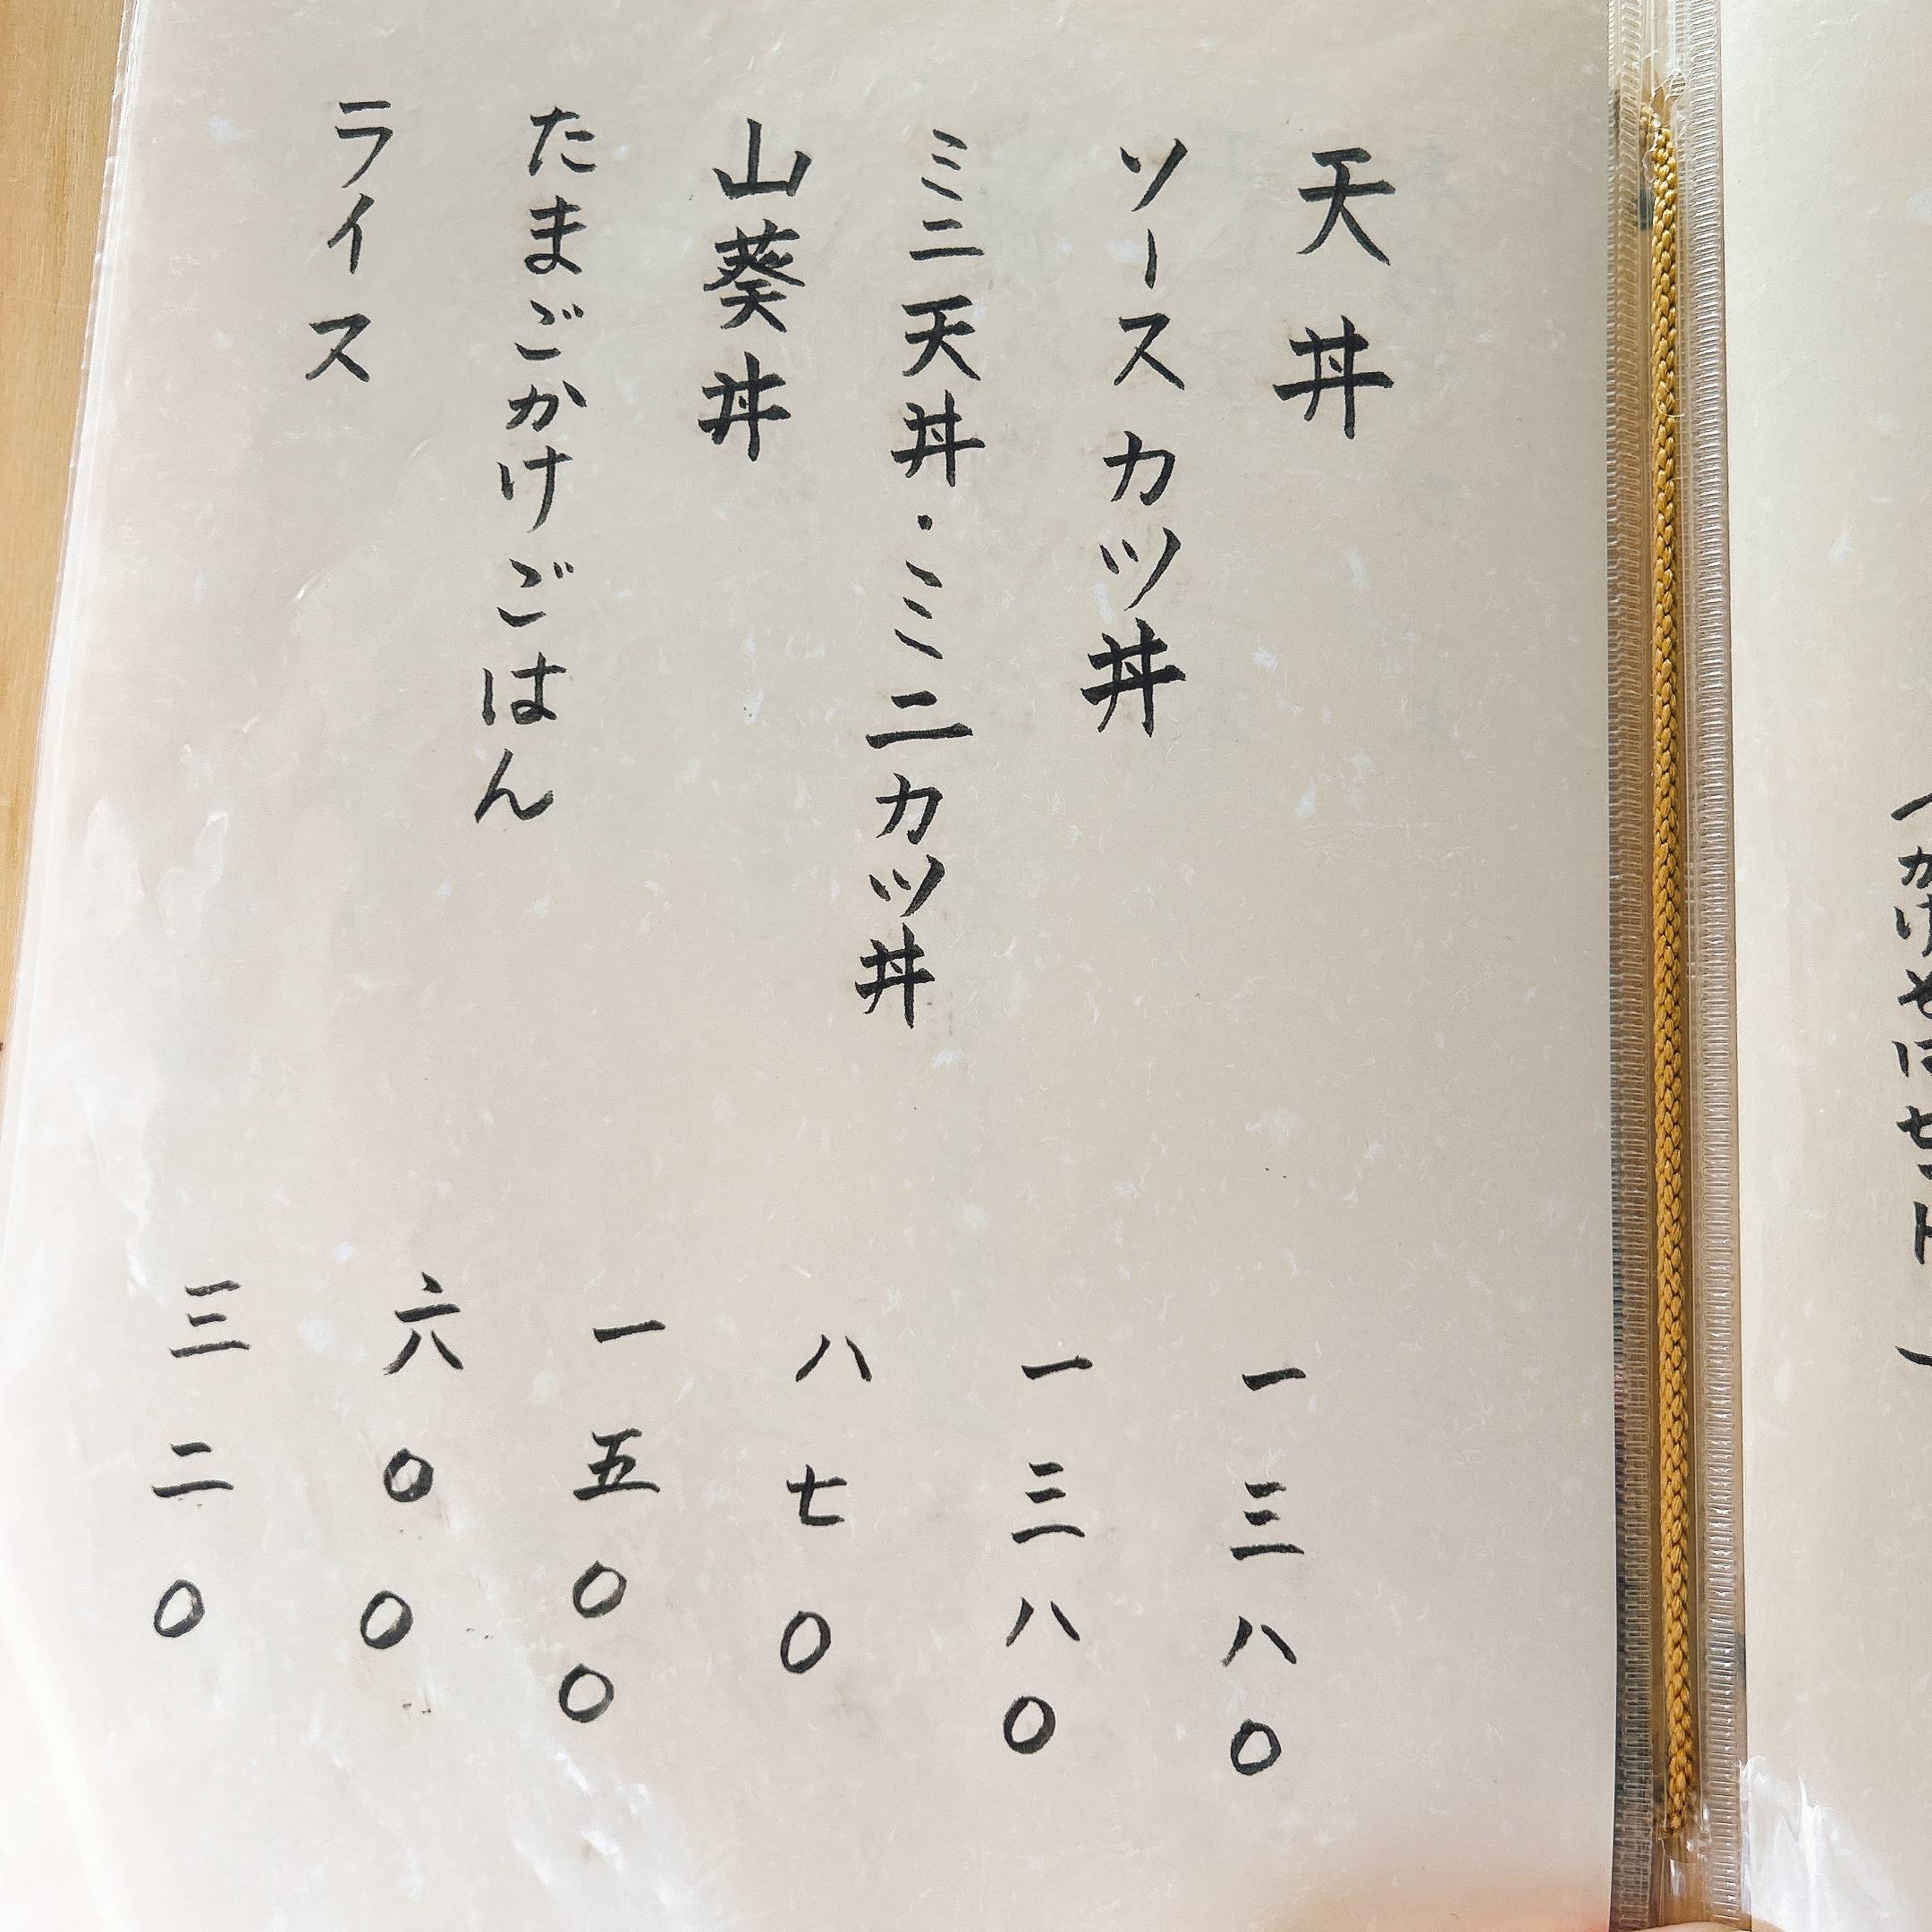 （かけそばセット）
天丼 一三八〇
ソースカツ丼 一三八〇
ミニ天丼・ミニカツ丼 八七〇
山葵丼 一五〇〇
たまごかけごはん 六〇〇
ライス 三二〇